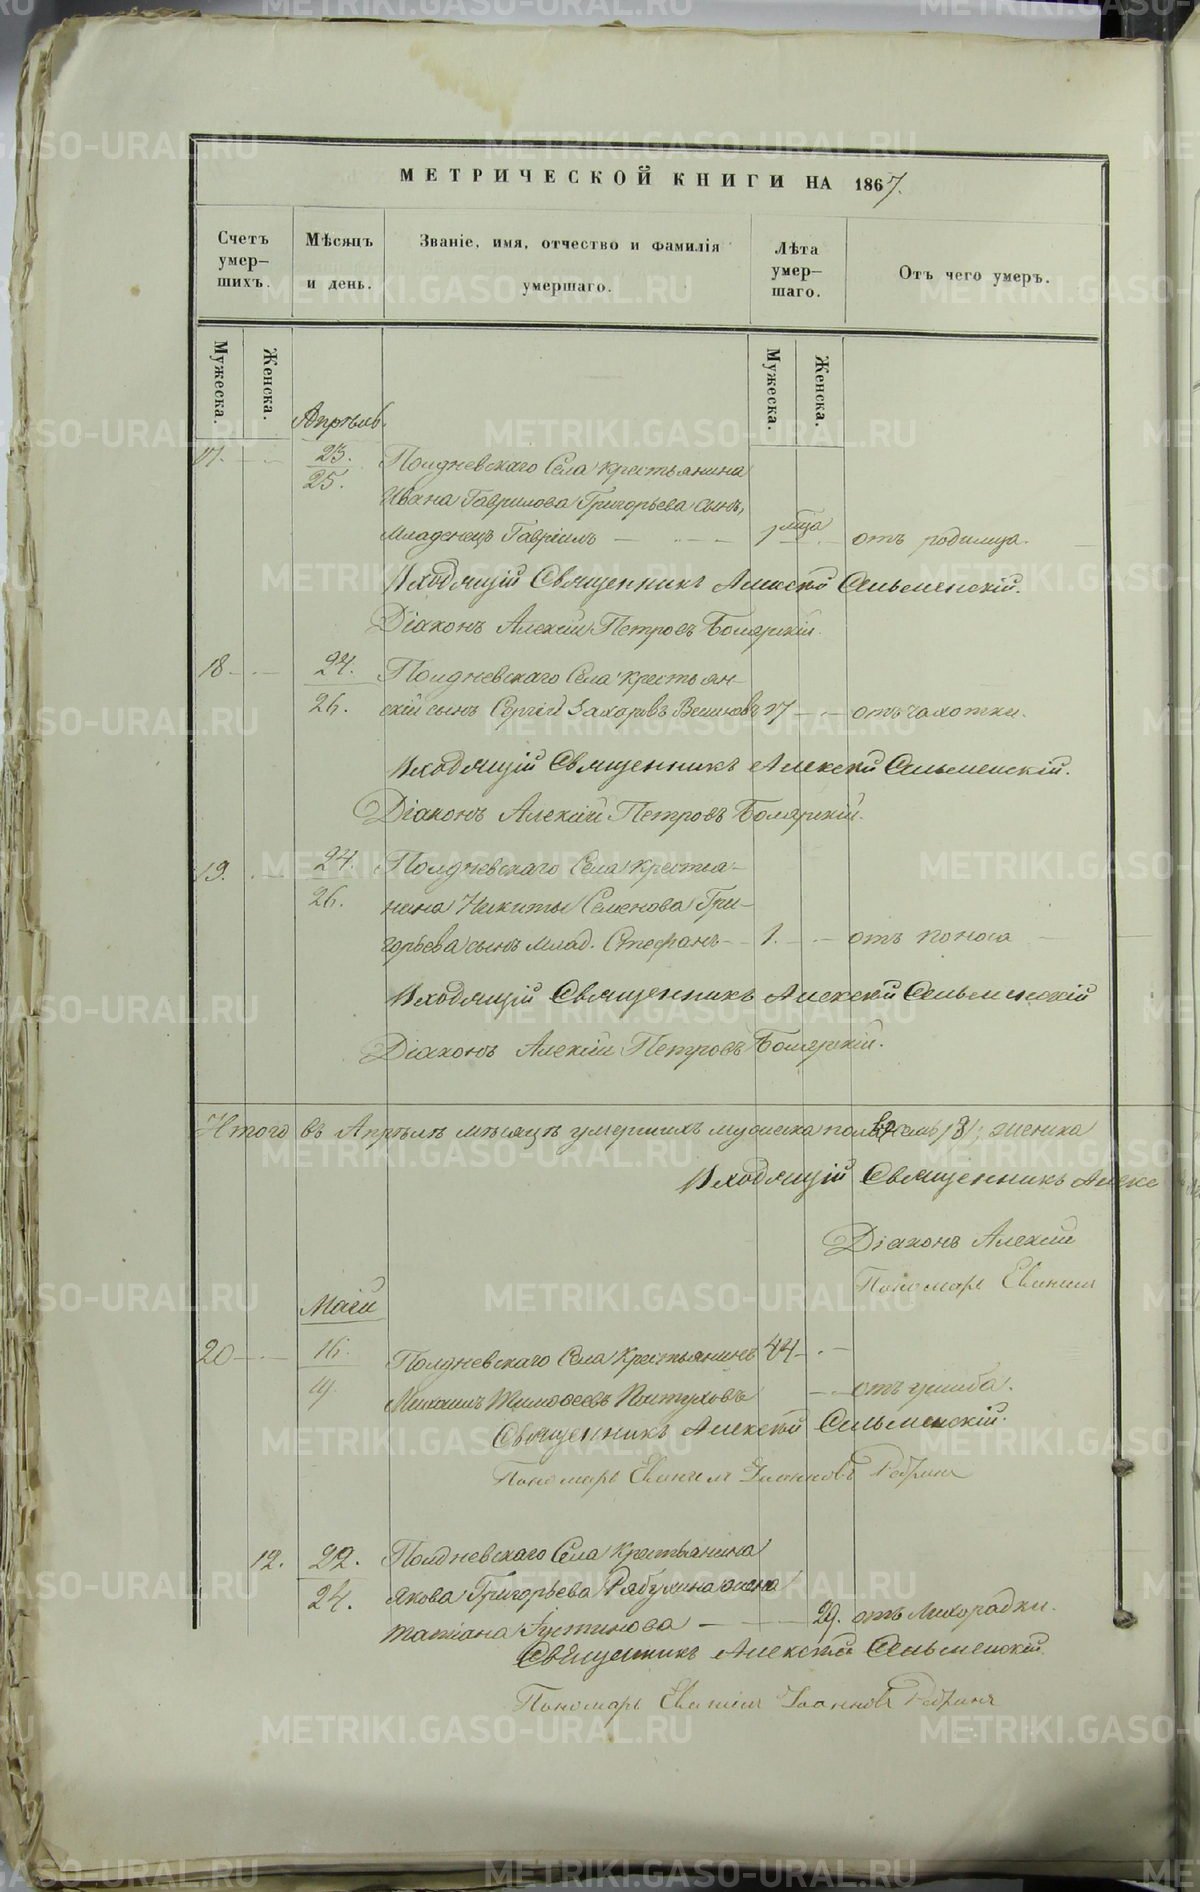 МЕТРИЧЕСКОЙ КНИГИ НА 1867.
Счетъ умер-шихъ.
Мѣсяцъ и день.
Званіе, имя, отчество и фамилія умершаго.
Лѣта умер-шаго.
Отъ чего умеръ.
Мужеска.
Женска.
Мужеска.
Женска.
Апрѣль.
17. 23. Полдневскаго Села крестьянина
25. Ивана Гаврилова Григорьева сынъ,
Младенецъ Гавріилъ 1 мца отъ родимца.
Входящій Священникъ Алексѣй Сельменскій.
Діаконъ Алексій Петровъ Боярскій.
18 24. Полдневскаго Села крестьян-
26. скій сынъ Сергій Захаровъ 17 отъ чахотки.
Входящій Священникъ Алексѣй Сельменскій.
Діаконъ Алексій Петровъ Боярскій.
19. 24. Полдневскаго Села крестья-
26. нина Никиты Семенова Гри-
горьева сынъ млад. Стефанъ 1. отъ поноса
Входящій Священникъ Алексѣй Сельменскій
Діаконъ Алексій Петровъ Боярскій.
Итого въ Апрѣлѣ мѣсяцѣ умершихъ мужеска пола женска
Входящій Священникъ Алекс
Діаконъ Алексій
Пономарь
Маій
20 16. Полдневскаго Села Крестьянинъ 44
19. Тимофеевъ Пастуховъ отъ ушиба.
Священникъ Алексѣй Сельменскій.
Пономарь Іоанновъ
12. 22. Полдневскаго Села Крестьянина
24. Якова Григорьева Рябухина жена
Татіана Іустинова 29. отъ Лихорадки.
Священникъ Алексѣй Сельменскій.
Пономарь Іоанновъ
METRIKI.GASO-URAL.RU